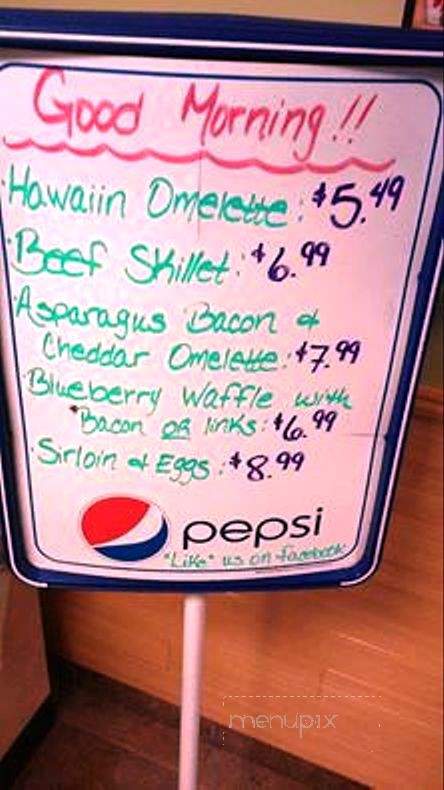 Good Morning!!
Hawaiin Omelette: $5.49
Beef Skillet: $6.99
Asparagus Bacon &
Cheddar Omelette: $7.99
Blueberry Waffle with
Bacon or links: $6.99
Sirloin & Eggs: $8.99
pepsi
"Like" us on facebook
menupix